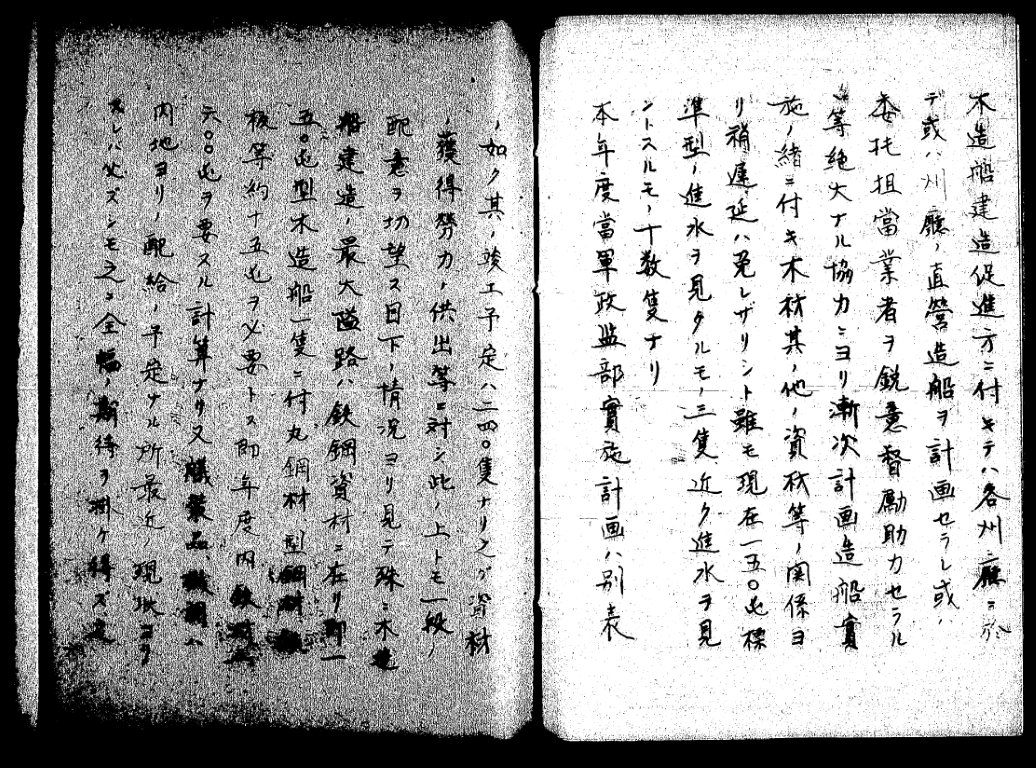 木造船建造促進方ニ付キテハ各州廳ニ於
デ或ハ州廳ノ直營造船ヲ計画セラレ或ハ
委托担當業者ヲ鋭意督勵助力セラル
ル等絶大ナル協力ニヨリ漸次計画造船實
施ノ緒ニ付キ木材其ノ他ノ資材等ノ関係ヨ
リ稍遅延ハ免レザリシト雖モ現在一五〇屯標
準型ノ進水ヲ見タルモノ三隻近ク進水ヲ見
ントスルモノ十数隻ナリ
本年度當軍政監部實施計画ハ別表
ノ如ク其ノ竣工予定ハ二四〇隻ナリ之ガ資材
ノ獲得勞力ノ供出等ニ対シ此ノ上トモ一段ノ
配意ヲ切望ス目下ノ情况ヨリ見テ殊ニ木造
船建造ノ最大隘路ハ鉄鋼資材ニ在リ即一
五〇屯型木造船一隻ニ付丸鋼材型鋼材鉄
板等約十五屯ヲ必要トス即年度内鉄材
六〇〇屯ヲ要スル計算ナリ又艤装品機関ハ
内地ヨリノ配給ノ予定ナル所最近ノ現状ヨリ
スレハ必ズシモ之ニ全幅ノ期待ヲ掛ケ得ズ